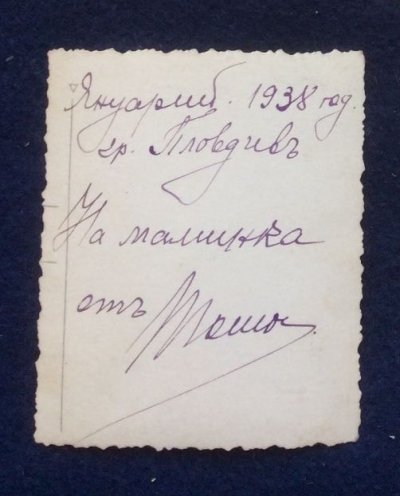 Януарий. 1938 год.
гр. Пловдивъ
На мамичка
отъ Тошо